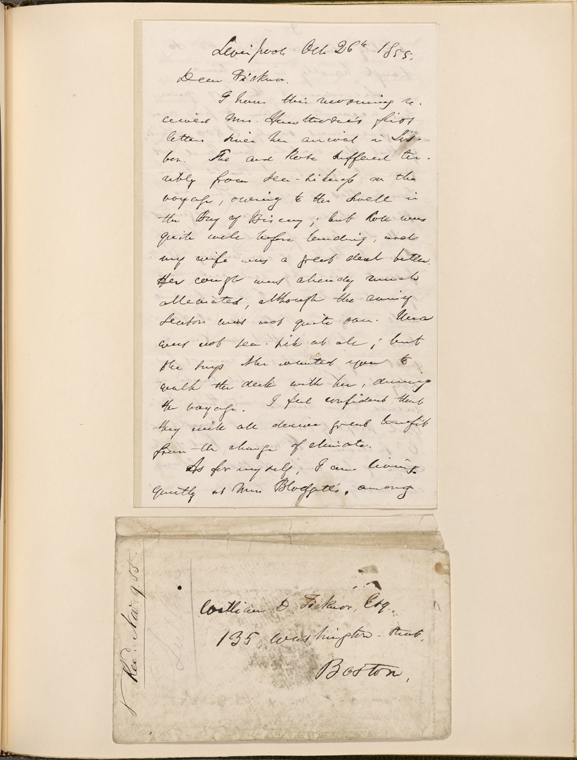 Liverpool Oct. 26th 1855.
Dear Ticknor.
I have this morning re-
ceived Mrs. Hawthorne's first
letter since her arrival in Lis-
bon. She and Rose suffered ter-
ribly from sea-sickness on the
voyage, owing to the swell in
the Bay of Biscay; but Rose was
quite well before landing, and
my wife was a great deal better.
Her cough was already much
alleviated, although the rainy
season was not quite over. Una
was not sea-sick at all; but
she says she wanted you to
walk the deck with her, during
the voyage. I feel confident that
they will all derive great benefit
from the change of climate.
As for myself, I am living
quietly at Mrs Blodget's, among
William D Ticknor, Esq.
135 Washington Street.
Boston,
Rec. Nov 9 55